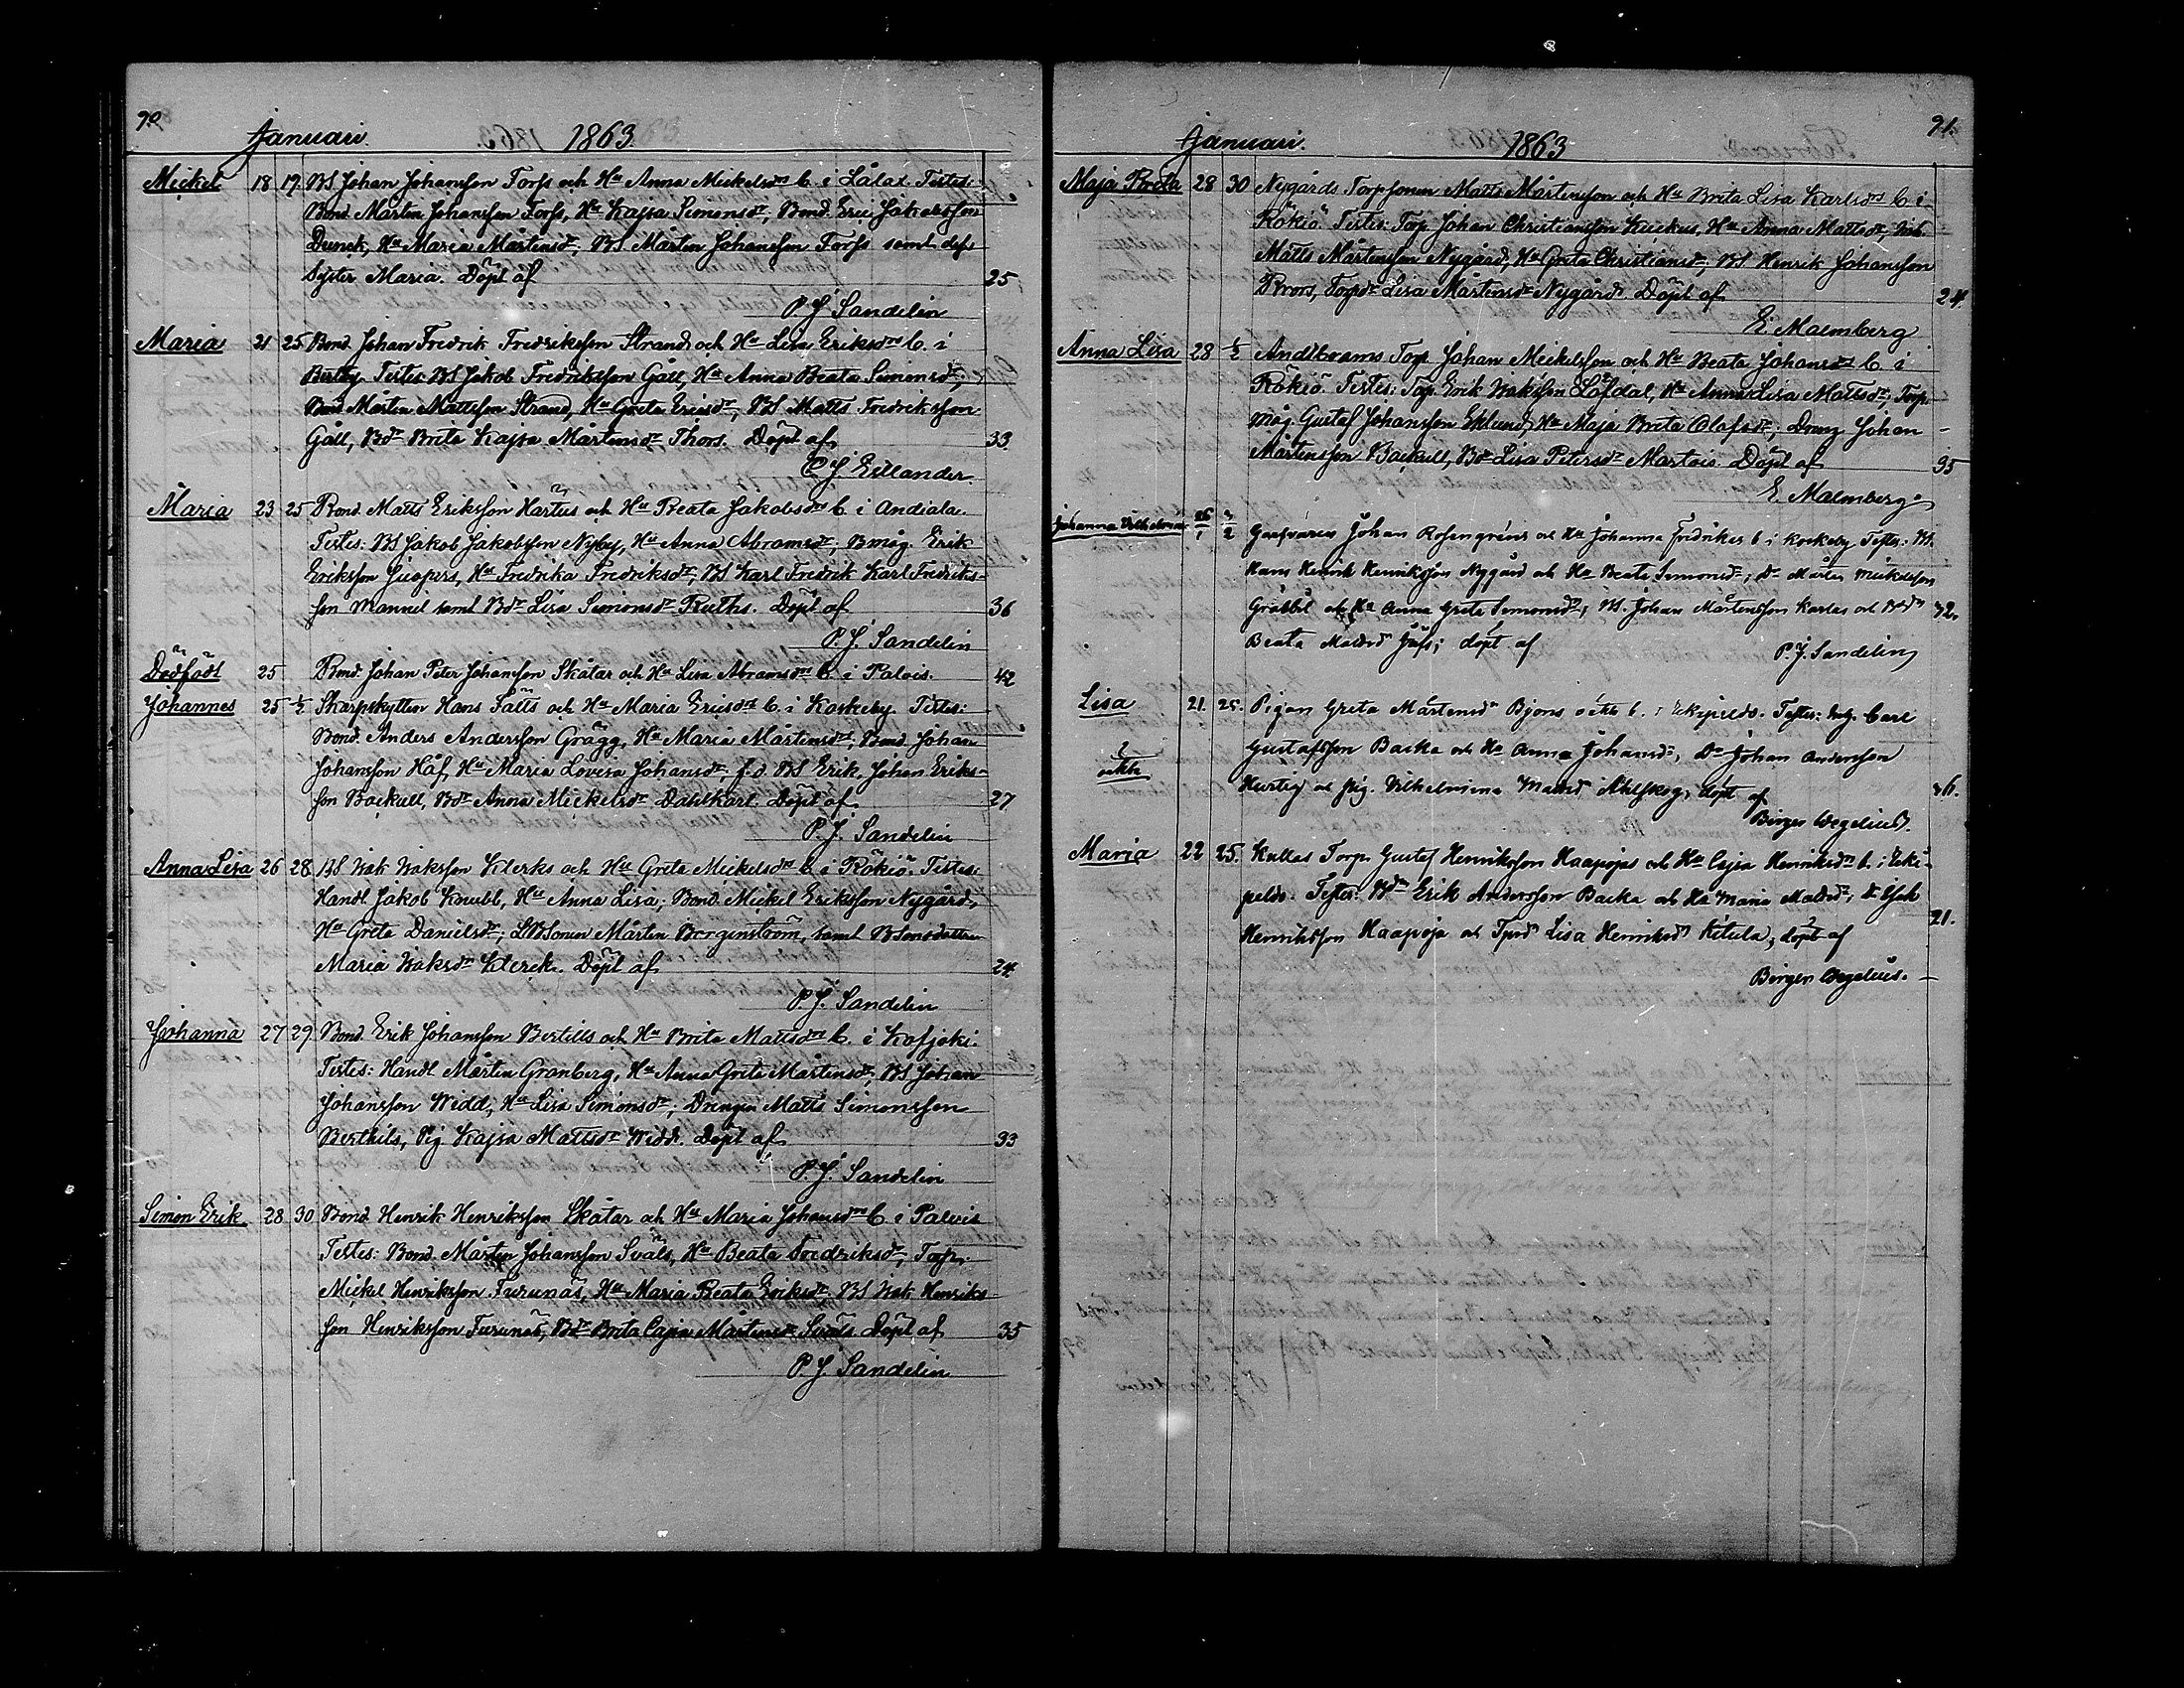 90
Januari. 1863
Mickel 18 19. BS Johan Johansson Forss och Hu Anna Mickelsdrs b. i Lålax. Testes:
Bond. Mårten Johansson Forss, Hu Kajsa Simonsdr, Bond. Eric Jakobsson
Dunck, Hu Maria Mårtensdr, BS Mårten Johansson Forss samt dess
Syster Maria. Döpt af 25
P. J. Sandelin
Maria 21 25 Bond. Johan Fredrik Fredriksson Strand och Hu Lisa Eriksdrs b. i
Bertby Testes: BS Jakob Fredriksson Gåll, Hu Anna Beata Simonsdr,
Bond Mårten Mattsson Strand, Hu Greta Ericsdr, BS Matts Fredriksson
Gåll, Bdr Brita Kajsa Mårtensdr Thors. Döpt af 33
J. Estlander
Maria 23 25 Bond. Matts Eriksson Härtus och Hu Beata Jakobsdrs b. i Andiala.
Testes: BS Jakob Jakobsson Nyby, Hu Anna Abramsdr, Bmåg. Erik
Eriksson Hu Fredrika Fredriksdr, BS Karl Fredrik Karl Fredriks-
son Mannil samt Bdr Lisa Simonsdr Ruths. Döpt af 36
P. J. Sandelin
Dödfödt 25 Bond. Johan Peter Johansson Skåtar och Hu Lisa Abramsdrs b. i Palvis. 42
Johannes 25 1/2 Skarpskytten Hans Fälts och Hu Maria Ericsdrs b. i Koskeby. Testes:
Bond. Anders Andersson Grägg, Hu Maria Mårtensdr, Bond. Johan
Johansson Häf, Hu Maria Lovisa Johansdr, f.d. BS Erik Johan Eriks-
son Backull, Bdr Anna Mickelsdr Dahlkarl. Döpt af 27
P. J. Sandelin
Anna Lisa 26 28 BS Isak Isaksson Klerks och Hu Greta Mickelsdrs b. i Rökiö. Testes:
Handl Jakob Knubb, Hu Anna Lisa; Bond. Mickel Eriksson Nygård,
Hu Greta Danielsdr; Mårten Borgenström, samt BSonsdottren
Maria Isaksdr Klerck. Döpt af 24
P. J. Sandelin
Johanna 27 29 Bond. Erik Johansson Bertills och Hu Brita Mattsdrs b. i Kofjoki.
Testes: Handl Mårten Granberg, Hu Anna Greta Mårtensdr, BS Johan
Johansson Widd, Hu Lisa Simonsdr; Drengen Matts Simonsson
Berthils, Pig. Kajsa Mattsdr Widd. Döpt af 33
P. J. Sandelin
Simon Erik 28 30 Bond Henrik Henriksson Skåtar och Hu Maria Johansdrs b. i Palvis
Testes: Bond. Mårten Johansson Sväls, Hu Beata Fredriksdr, Torp.
Mickel Henriksson Furunäs, Hu Maria Beata Eriksdr, BS Isak Henriks-
son Henriksson Furunäs, Bdr Brita Cajsa Mårtensdr Sväls Döpt af 35
P. J. Sandelin
91.
Januari. 1863
Maja Brita 28 30 Nygårds Torpsonen Matts Mårtensson och Hu Brita Lisa Karlsdrs b. i
Rökiö. Testes: Torp. Johan Christiansson Kuckus, Hu Anna Mattsdr,
Matts Mårtensson Nygård, Hu Greta Christiansdr, BS Henrik Johansson
Brors, Torpdr Lisa Mårtensdr Nygård. Döpt af 24.
E. Malmberg
Anna Lisa 28 1/2 Andtbroms Torp Johan Mickelsson och Hu Beata Johansdrs b. i
Rökiö. Testes: Torp. Erik Isaksson Löfdal, Hu Anna Lisa Mattsdr, Torp.
måg. Gustaf Johansson Eklund, Hu Maja Brita Olofsdr; Dreng Johan
Mårtensson Backull, Bdr Lisa Petersdr Martois. Döpt af 35
E. Malmberg
Johanna Vilhelmina 26/1 3/2 Garfvaren Johan Rosengréns och Hu Johanna Fredrikas b i Koskeby Testes: BS.
Hans Henrik Henriksson Nygård och Hu Beata Simonsdr; Dr Mårten Mickelsson
Gräbbil och Hu Anna Greta Simonsdr; BS. Johan Mårtensson Karlas och Bdr 32.
Beata Mattsdr Jufs; döpt af
P. J. Sandelin
Lisa 21. 25. Pigan Greta Mårtensdr Bjons oäkta b. i Kikipeldo. Testes: Carl
oäkta Gustafsson Backa och Hu Anna Johansdr, Dr Johan Andersson
Hurtig och pig. Vilhelmina Mattsdr Ahlskog, döpt af 36.
Birger Wegelius.
Maria 22 25. Kullas Torp. Gustaf Henriksson Haapojas och Hu Cajsa Henriksdrs b. i Keki-
peldo. Testes: Bdn Erik Andersson Backa och Hu Maria Mattsdr, Dr Isak
Henriksson Haapoja och Lisa Henriksdr Kitula, döpt af 21.
Birger Wegelius.